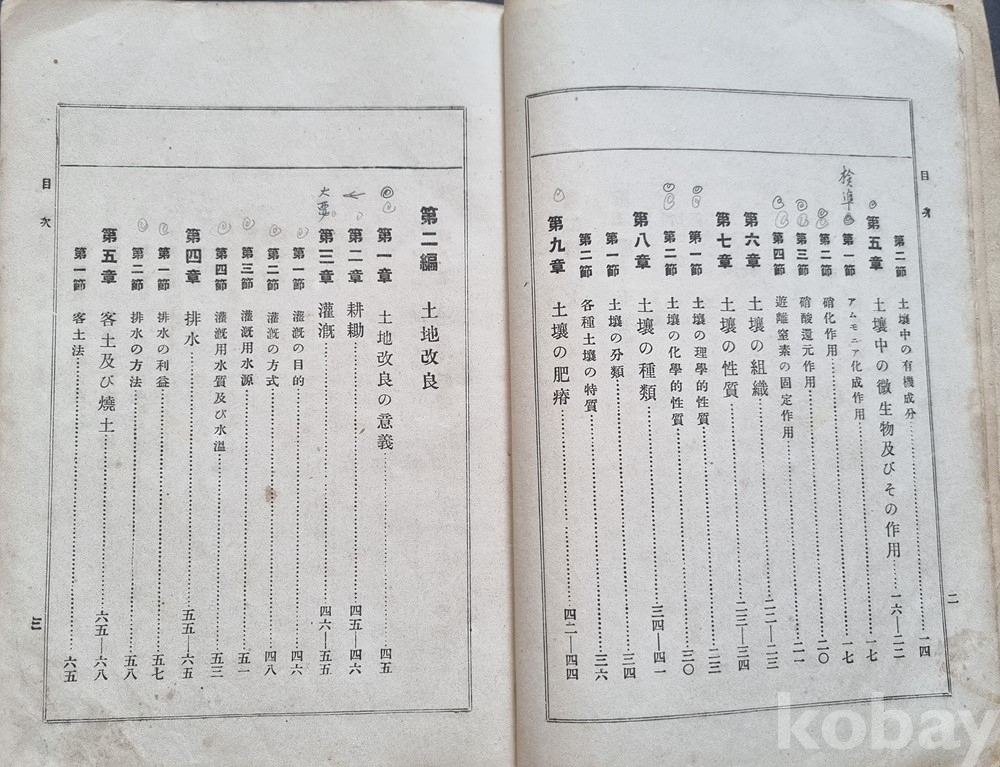 目次
二
第二節 土壤中の有機成分 一四
第五章 土壤中の微生物及びその作用 一六—二二
第一節 アムモニア化成作用 一七
第二節 硝化作用 二〇
第三節 硝酸還元作用 二一
第四節 遊離窒素の固定作用
第六章 土壤の組織 二二—二三
第七章 土壤の性質 二三—三四
第一節 土壤の理學的性質 二三
第二節 土壤の化學的性質 三〇
第八章 土壤の種類 三四—四一
第一節 土壤の分類 三四
第二節 各種土壤の特質 三六
第九章 土壤の肥瘠 四二—四四
目次
三
第二編 土地改良
第一章 土地改良の意義 四五
第二章 耕耡 四五—四六
大要
第三章 灌漑 四六—五五
第一節 灌漑の目的 四六
第二節 灌漑の方式 四八
第三節 灌漑用水源 五一
第四節 灌漑用水質及び水溫 五三
第四章 排水 五五—六五
第一節 排水の利益 五七
第二節 排水の方法 五八
第五章 客土及び燒土 六五—六八
第一節 客土法 六五
kobay